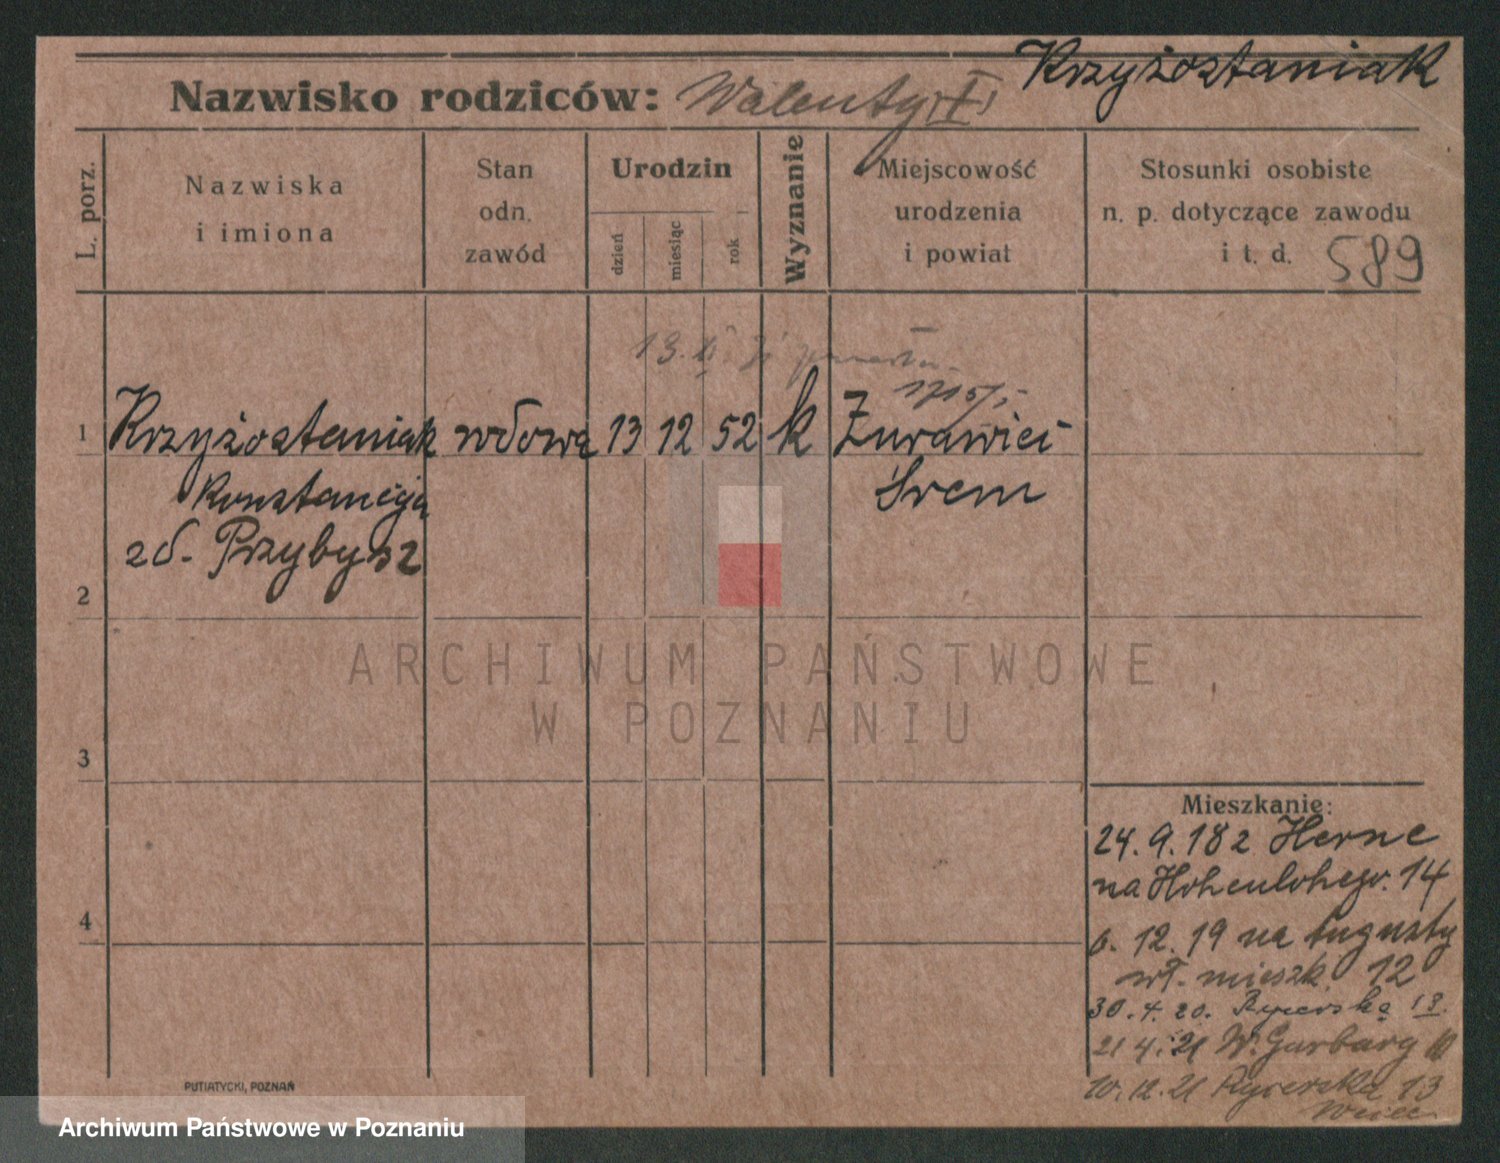 Krzyżostaniak
Nazwisko rodziców: Walenty
L. porz.
Nazwiska
i imiona
Stan
odn.
zawód
Urodzin
dzień
miesiąc
rok
Wyznanie
Miejscowość
urodzenia
i powiat
Stosunki osobiste
n. p. dotyczące zawodu
i t. d. 589
1 Krzyżostaniak wdowa 13 12 52 k Żurawieć
Konstancja Śrem
zd. Przybysz
2
3
4
Mieszkanie:
24. 9. 18 z Herne
na Hohenlohego. 14
6. 12. 19 na Augusty
wł. mieszk. 12
30. 4. 20. Rycerska 13.
21 4. 21 W. Garbary
10. 12. 21 Rycerska 13
PUTIATYCKI, POZNAŃ
ARCHIWUM PAŃSTWOWE
W POZNANIU
Archiwum Państwowe w Poznaniu